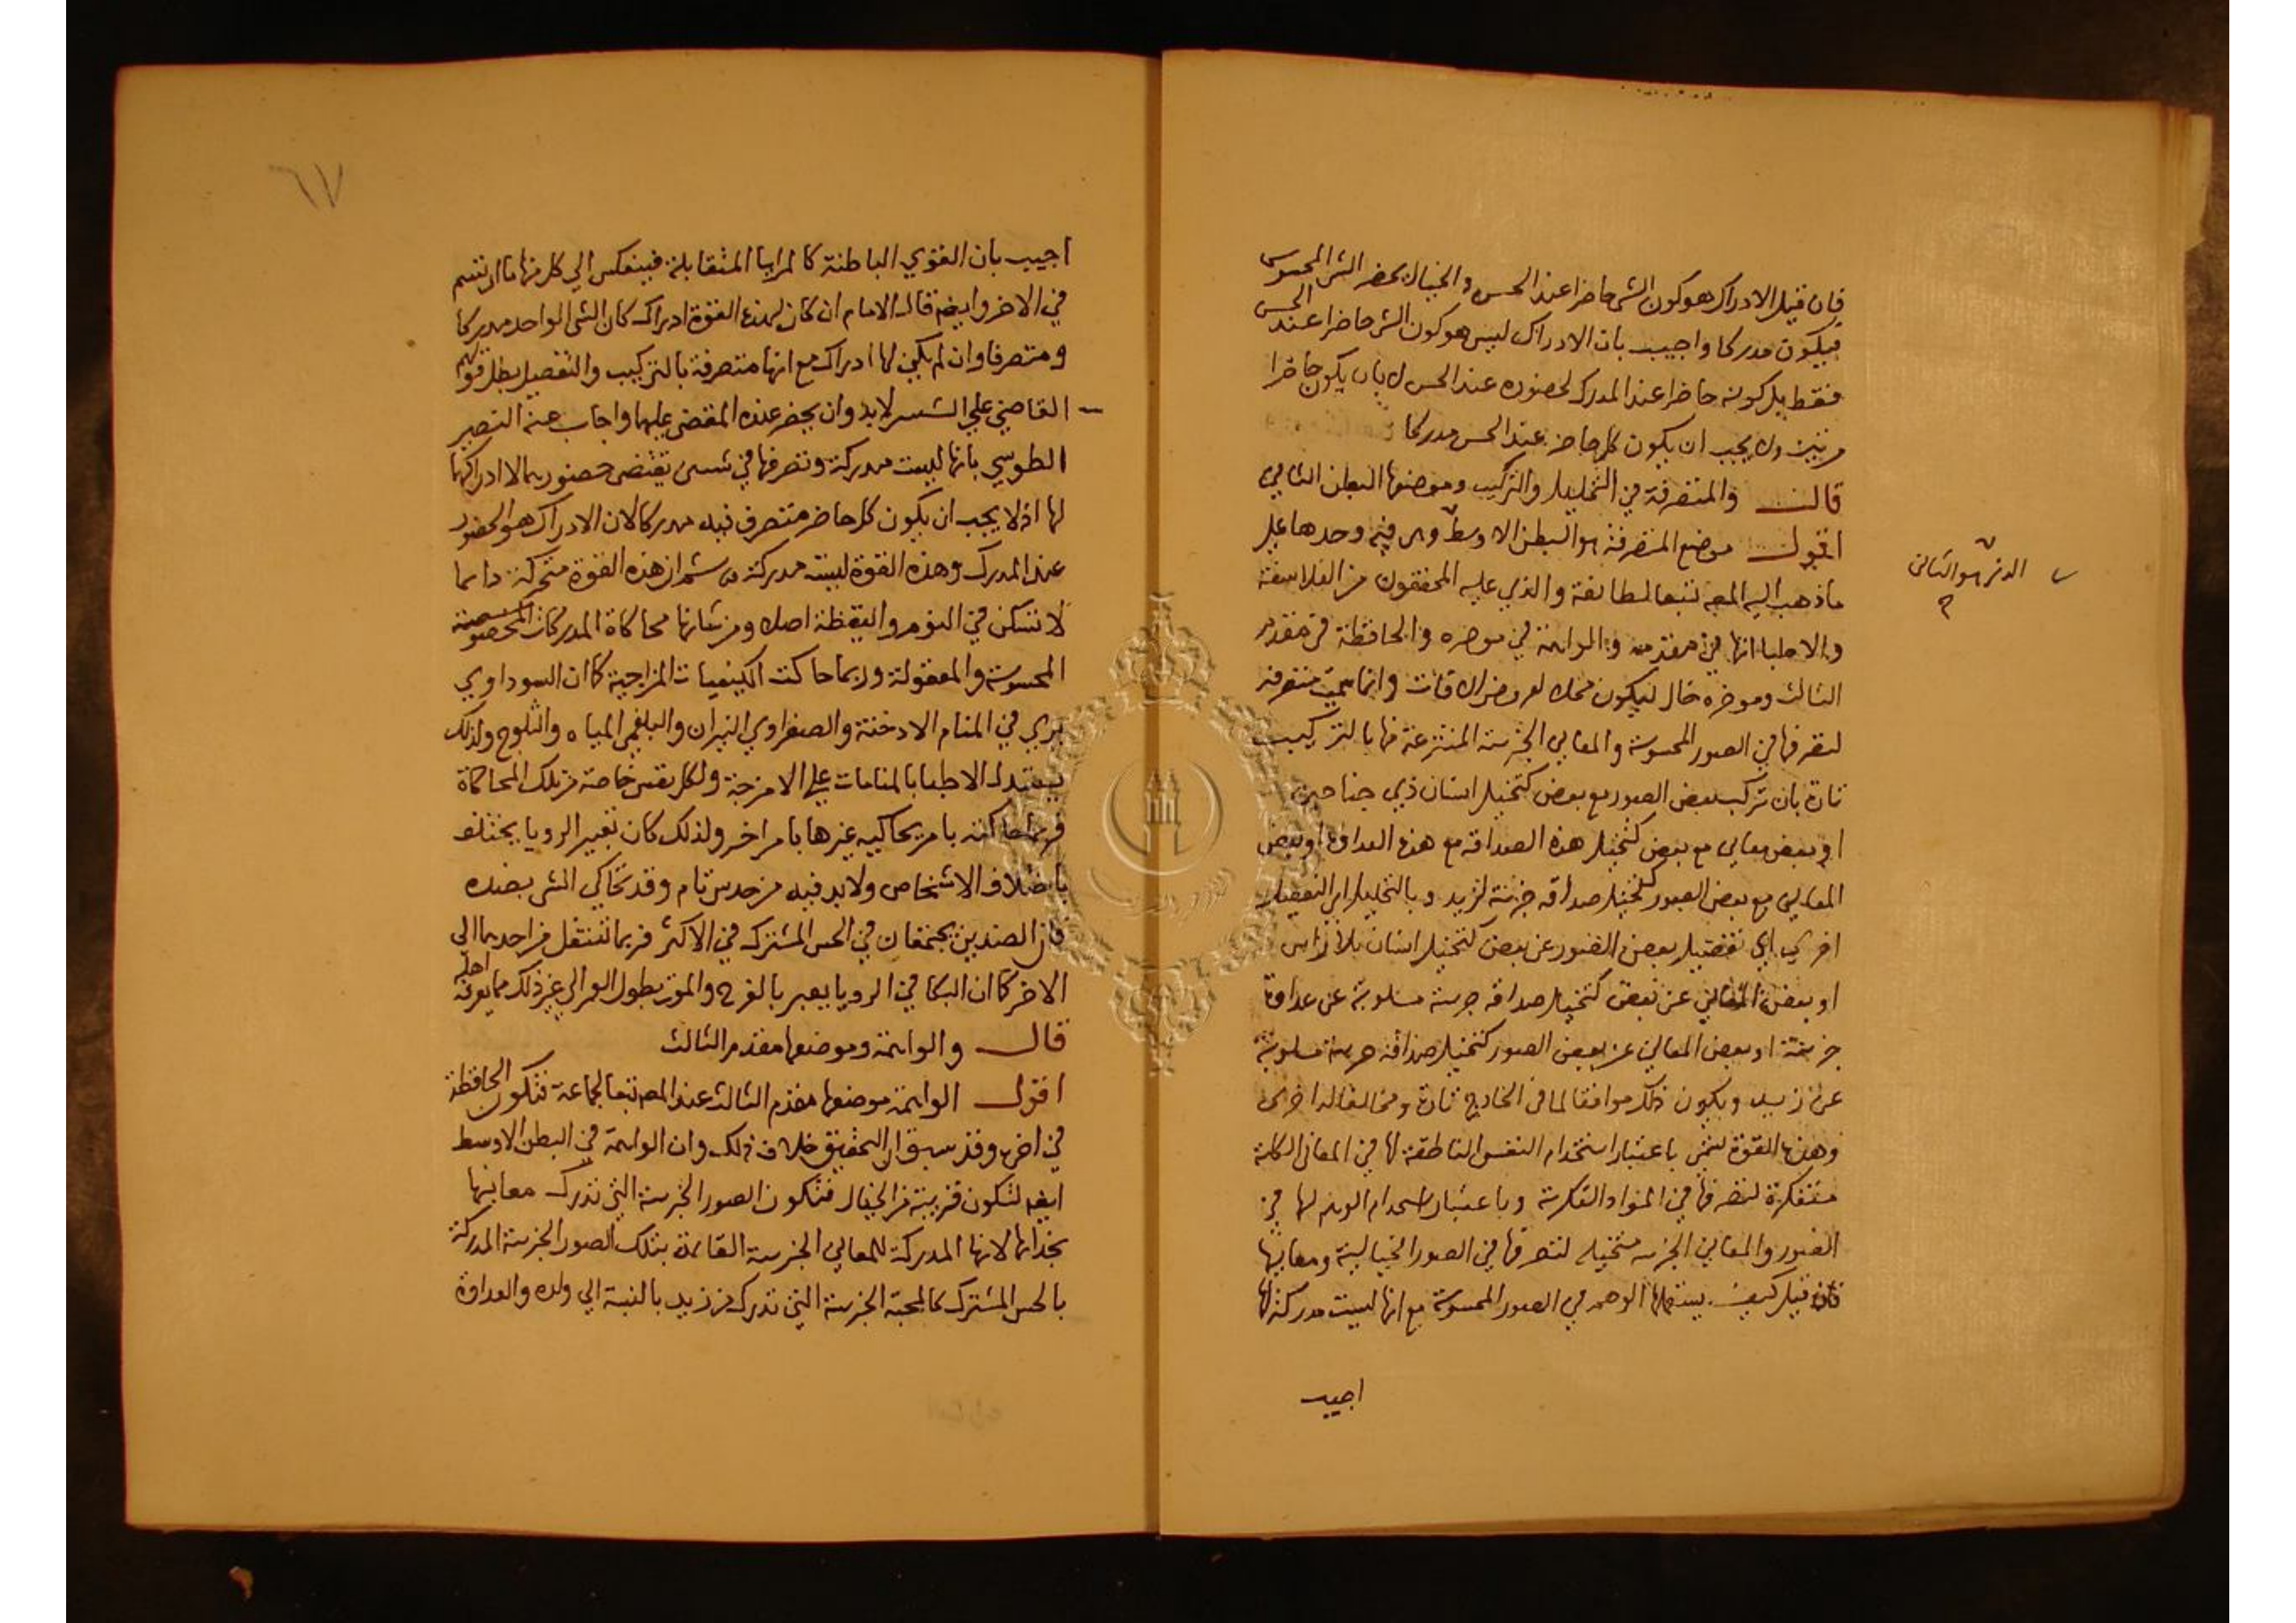 فان قيل الادراك هو كون الشى حاضرا عند الحس والخيال يحضر الشى المحسوس
فيكون مدركا واجيب بان الادراك ليس هو كون الشى حاضرا عند الحس
فقط بل كونه حاضرا عند المدرك لحضوره عند الحس لا بان يكون حاضرا
مرتين ولا يجب ان يكون كل حاضر عند الحس مدركا
قال والمتصرفة في التحليل والتركيب وموضعها البطن الثاني
اقول موضع المتصرفة هو البطن الاوسط وهى فيه وحدها على
الذى هو الثانى
ماذهب اليه المصه تبعا لطائفة والذي عليه المحققون من الفلاسفة
والاطبا انها في مقدمه والواهمة في موخره والحافظة في مقدم
الثالث وموخره خال ليكون محلا لعروض الافات وانما سميت متصرفة
لتصرفها في الصور المحسوسة والمعاني الجزئية المنتزعة منها بالتركيب
تارة بان تركب بعض الصور مع بعض كتخيل انسان ذي جناحين
او بعض معاني مع بعض كتخيل هذه الصداقه مع هذه العداوة او بعض
المعاني مع بعض الصور كتخيل صداقه جزئية لزيد وبالتحليل اي التفصيل
اخرى اي تفصيل بعض الصور عن بعض كتخيل انسان بلا راس
او بعض المعاني عن بعض كتخيل صداقه جزئية مسلوبة عن عداوة
جزئية او بعض المعاني عن بعض الصور كتخيل صداقه جزئية مسلوبة
عن زيد ويكون ذلك موافقا لما في الخارج تارة ومخالفا له اخرى
وهذه القوة تسمى باعتبار استخدام النفس الناطقة لها في المعاني الكلية
متفكرة لتصرفها في المواد الفكرية وباعتبار استخدام الوهم لها في
الصور والمعاني الجزئية متخيلة لتصرفها في الصور الخيالية ومعانيها
فان قيل كيف يستعملها الوهم في الصور المحسوسة مع انها ليست مدركة لها
اجيب
٦٧
اجيب بان القوي الباطنة كالمرايا المتقابلة فينعكس الي كل منها ما ارتسم
في الاخر وايضه قال الامام ان كان لهذه القوة ادراك كان الشى الواحد مدركا
ومتصرفا وان لم يكن لها ادراك مع انها متصرفة بالتركيب والتفصيل بطل قولهم
القاضي علي الشيين لابد وان يحضر عنده المقضى عليهما واجاب عنه النصير
الطوسي بانها ليست مدركة وتصرفها في شيين يقتضى حضورهما لا ادراكها
لها اذ لا يجب ان يكون كل حاضر متصرف فيه مدركا لان الادراك هو الحضور
عند المدرك وهذه القوة ليست مدركة ثم ان هذه القوة متحركة دايما
لا تسكن في النوم واليقظة اصلا ومن شانها محاكاة المدركات
المحسوسة والمعقولة وربما حاكت الكيفيات المزاجية كما ان السوداوي
يري في المنام الادخنة والصفراوي النيران والبلغمى المياه والثلوج ولذلك
يستدل الاطبا بالمنامات علي الامزجة ولكل نفس خاصة من تلك المحاكاة
فربما حاكته بامر يحاكيه غيرها بامر اخر ولذلك كان تعبير الرويا يختلف
باختلاف الاشخاص ولابد فيه من حدس تام وقد تحاكي الشى بضده
فان الضدين يجتمعان في الحس المشترك في الاكثر فربما تنتقل من احدهما الى
الاخر كما ان البكا في الرويا يعبر بالفرح والموت بطول العمر الي غير ذلك مما يعرفه اهله
قال والواهمة وموضعها مقدم الثالث
اقول الواهمة موضعها مقدم الثالث عند المصه تبعا لجماعة فتكون الحافظة
في اخره وقد سبق ان التحقيق خلاف ذلك وان الواهمة في البطن الاوسط
ايضه لتكون قريبة من الخيال فتكون الصور الجزئية التي تدرك معانيها
بحذائها لانها المدركة للمعاني الجزئية القائمة بتلك الصور الجزئية المدركة
بالحس المشترك كالمحبة الجزئية التي تدرك من زيد بالنسبة الي ولده والعداوة